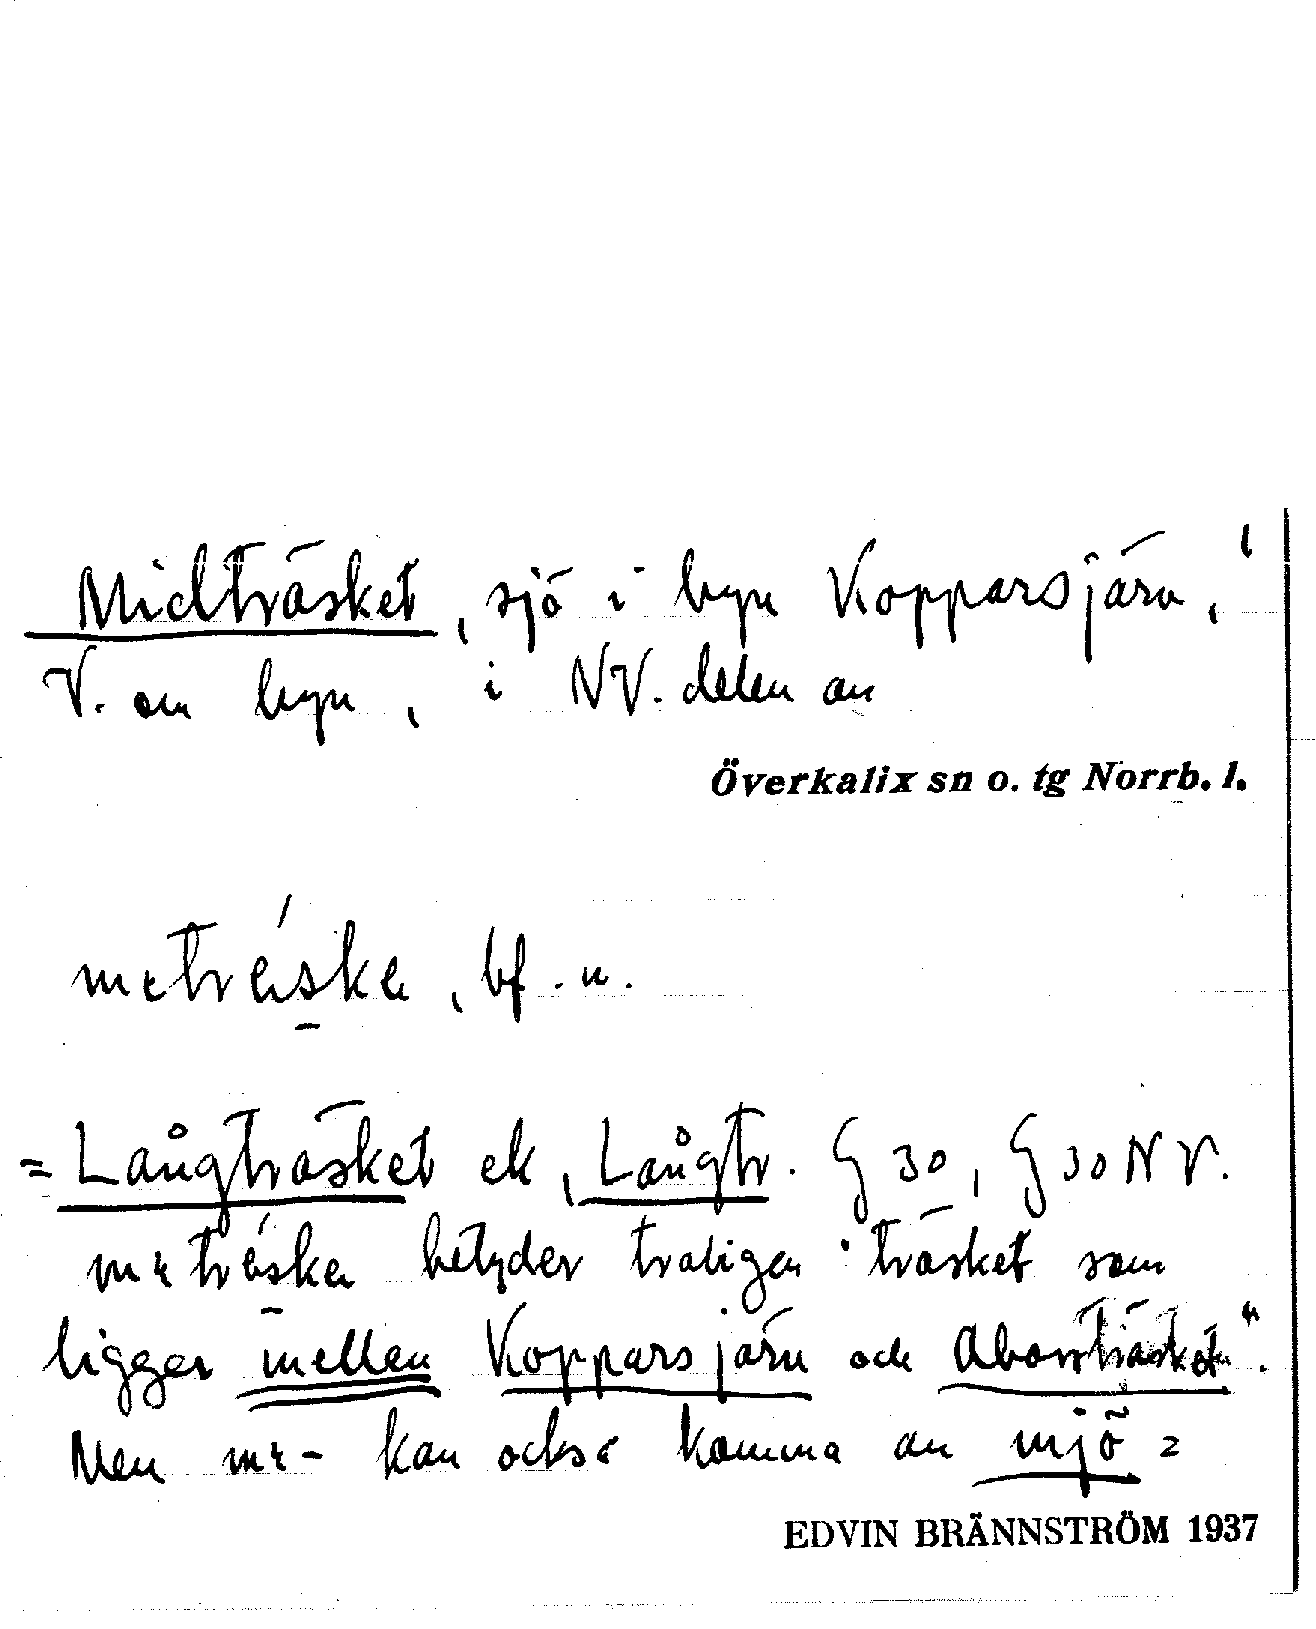 Midträsket, sjö i byn Kopparsjärv,
V. om byn, i NV. delen av
Överkalix sn o. tg Norrb. l.
metrḗska, bf. n.
= Långträsket ek, Långtr. G 30, G 30 NV.
betyder troligen "träsket som
ligger mellan Kopparsjärv och Aborrträsket".
Men kan också komma av mjö =
EDVIN BRÄNNSTRÖM 1937